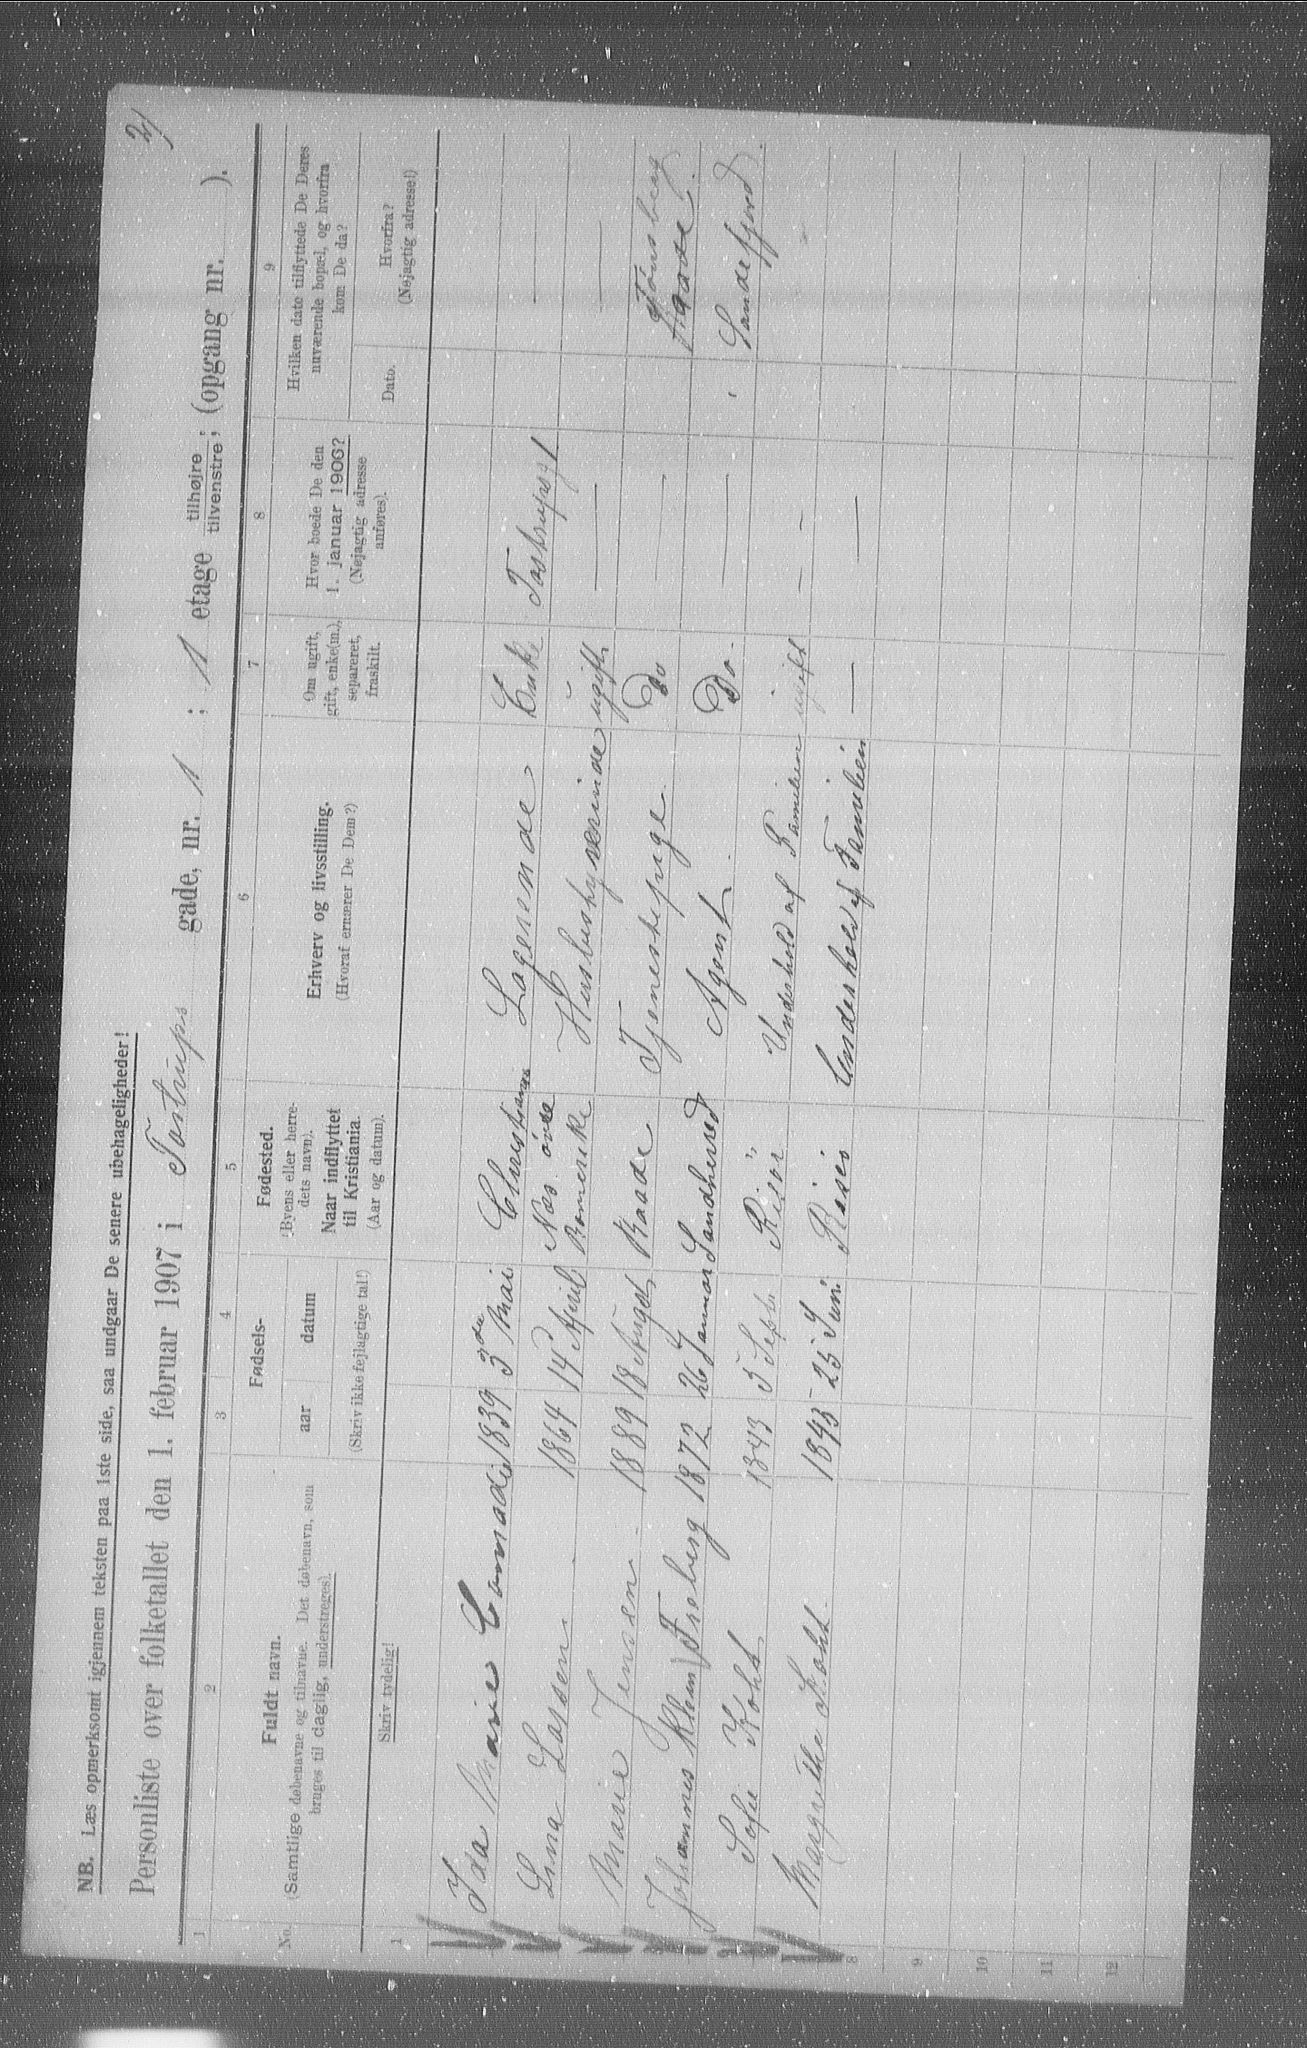 2)
NB. Læs opmerksomt igjennem teksten paa 1ste side, saa undgaar De senere ubehageligheder!
Personliste over folketallet den 1. februar 1907 i Tostrups gade, nr. 1 ; 1 etage tilhøjre tilvenstre; (opgang nr. ).
1 2 3 4 5 6 7 8 9
No.
Fuldt navn.
(Samtlige døbenavne og tilnavne. Det døbenavn, som
bruges til daglig, understreges).
Fødsels-
aar datum
Fødested.
(Byens eller herre-
dets navn).
Naar indflyttet
til Kristiania.
(Aar og datum).
Erhverv og livsstilling.
(Hvoraf ernærer De Dem?)
Om ugift,
gift, enke(m.),
separeret,
fraskilt.
Hvor boede De den
1. januar 1906?
(Nøjagtig adresse
anføres).
Hvilken dato tilflyttede De Deres
nuværende bopæl, og hvorfra
kom De da?
Skriv tydelig!
(Skriv ikke fejlagtige tal!)
Dato.
Hvorfra?
(Nøjagtig adresse!)
1
Ida Marie 1839 3die Mai Christiania Logerende Enke Tostrupsg 1 —
Lina Lassen 1864 14 April Næs øvre Romerike Husbestyrerinde ugift — —
Marie Jensen 1889 18 August Raade Tjenestepige Do — Raade
Johannes Klem Froberg 1872 26 Januar Sandherred Agent Do — Tønsberg Sandefjord.
Sofie Koht 1843 5 Septb Risør Underhold af Familien ugift — —
Margrethe Koht. 1843 - 25 Juni Underhold af Familien — —
8
9
10
11
12